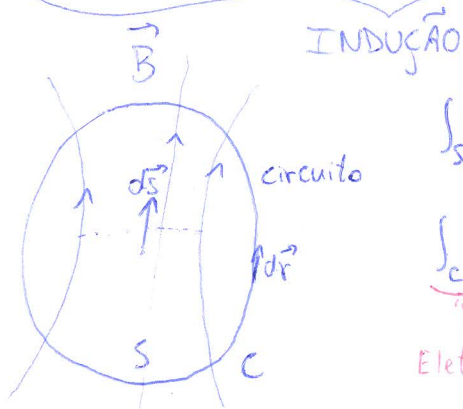 INDUÇÃO
B⃗
∫S
circuito
ds⃗
dr⃗
∫C
S C
Elet